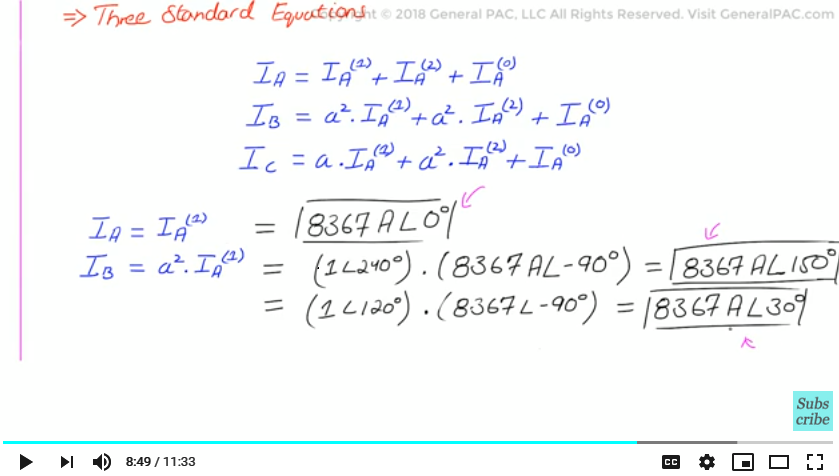 ⇒ Three Standard Equations ht © 2018 General PAC, LLC All Rights Reserved. Visit GeneralPAC.com
I_A = I_A^(1) + I_A^(2) + I_A^(0)
I_B = a². I_A^(1) + a². I_A^(2) + I_A^(0)
I_C = a. I_A^(1) + a². I_A^(2) + I_A^(0)
I_A = I_A^(1) = 8367 A∠0°
I_B = a². I_A^(1) = (1∠240°) . (8367 A∠-90°) = 8367 A∠150°
= (1∠120°) . (8367∠-90°) = 8367 A∠30°
Subs
cribe
8:49 / 11:33
CC